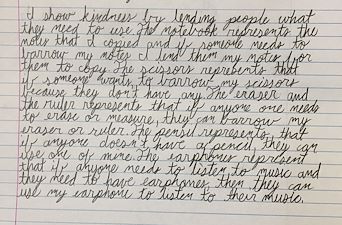 I show kindness by lending people what
they need to use. The notebook represents the
notes that I copied and if someone needs to
barrow my notes I lend them my notes for
them to copy. The scissors represents that
if someone wants to barrow my scissors
because they don't have any. The eraser and
the ruler represents that if anyone one needs
to erase or measure, they can barrow my
eraser or ruler. The pensil represents, that
if anyone doesn't have a pencil, they can
use one of mine. The earphones represent
that if anyone needs to listen to music and
they need to have earphones then they can
use my earphone to listen to their music.